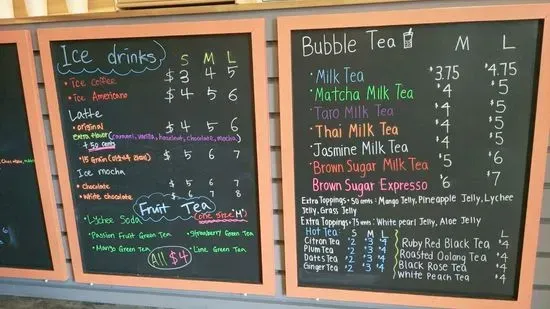 Ice drinks
S M L
• Ice Coffee $3 4 5
• Ice Americano $4 5 6
Latte
• original $4 5 6
Extra flavor (caramel, vanilla, hazelnut, chocolate, mocha)
+ 50 cents
$5 6 7
Ice mocha
• Chocolate $5 6 7
• White chocolate $6 7 8
Fruit Tea
(one size M)
• Lychee Soda
• Passion Fruit Green Tea • Strawberry Green Tea
• Mango Green Tea • Lime Green Tea
All $4
Bubble Tea M L
• Milk Tea $3.75 $4.75
• Matcha Milk Tea $4 $5
• Taro Milk Tea $4 $5
• Thai Milk Tea $4 $5
• Jasmine Milk Tea $4 $5
• Brown Sugar Milk Tea $5 $6
Brown Sugar Expresso $6 $7
Extra Toppings + 50 cents : Mango Jelly, Pineapple Jelly, Lychee
Jelly, Grass Jelly
Extra Toppings + 75 cents : White pearl Jelly, Aloe Jelly
Hot Tea: S M L
Citron Tea $2 $3 $4
Plum Tea $2 $3 $4
Dates Tea $2 $3 $4
Ginger Tea $2 $3 $4
Ruby Red Black Tea $4
Roasted Oolong Tea $4
Black Rose Tea $4
White Peach Tea $4